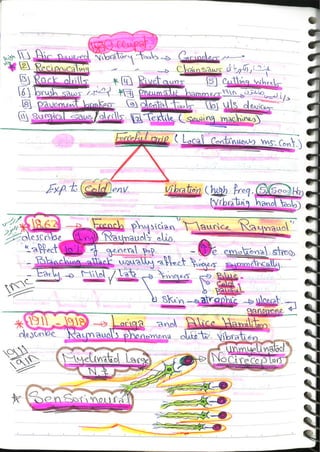 Occupat
[1] Air powered vibrating tools → Grinders
[2] Reciprocating → Chainsaws
[3] Rock drills *[4] Rivet guns [5] Cutting wheels
[6] brush saws *[7] Pneumatic hammers
[8] pavement breakers [9] dental tools [10] U/S devices
[11] Surgical saws/drills [12] Textile (sewing machines)
Forceful grip (Local Continuous ms. Cont.)
Exp. to Cold env. Vibration (high freq. 5 → 500 Hz)
(vibrating hand tools)
* 1862 → French physician "Maurice Raynaud"
describe Raynaud's dis.
- affect of general pop. emotional stress
- Blanching attack usually affect fingers symmetrically
- Early → Mild / Late → fingers → Blue
Cold
skin → atrophic → ulcerat
gangrene
* 1911 - 1918 → Loriga and Alice Hamilton
describe Raynaud's phenomena due to vibration
1911
1918
Myelinated Large
N.F
unmyelinated
Nocireceptors
* Sensorineural